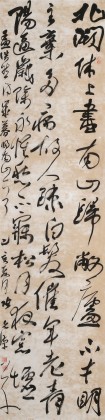 北闕休上書南山歸敝廬不才明
主棄多病故人疎白髮催年老青
陽逼歲除永懷愁不寐松月夜窗虛
孟浩然詩歲暮歸南山